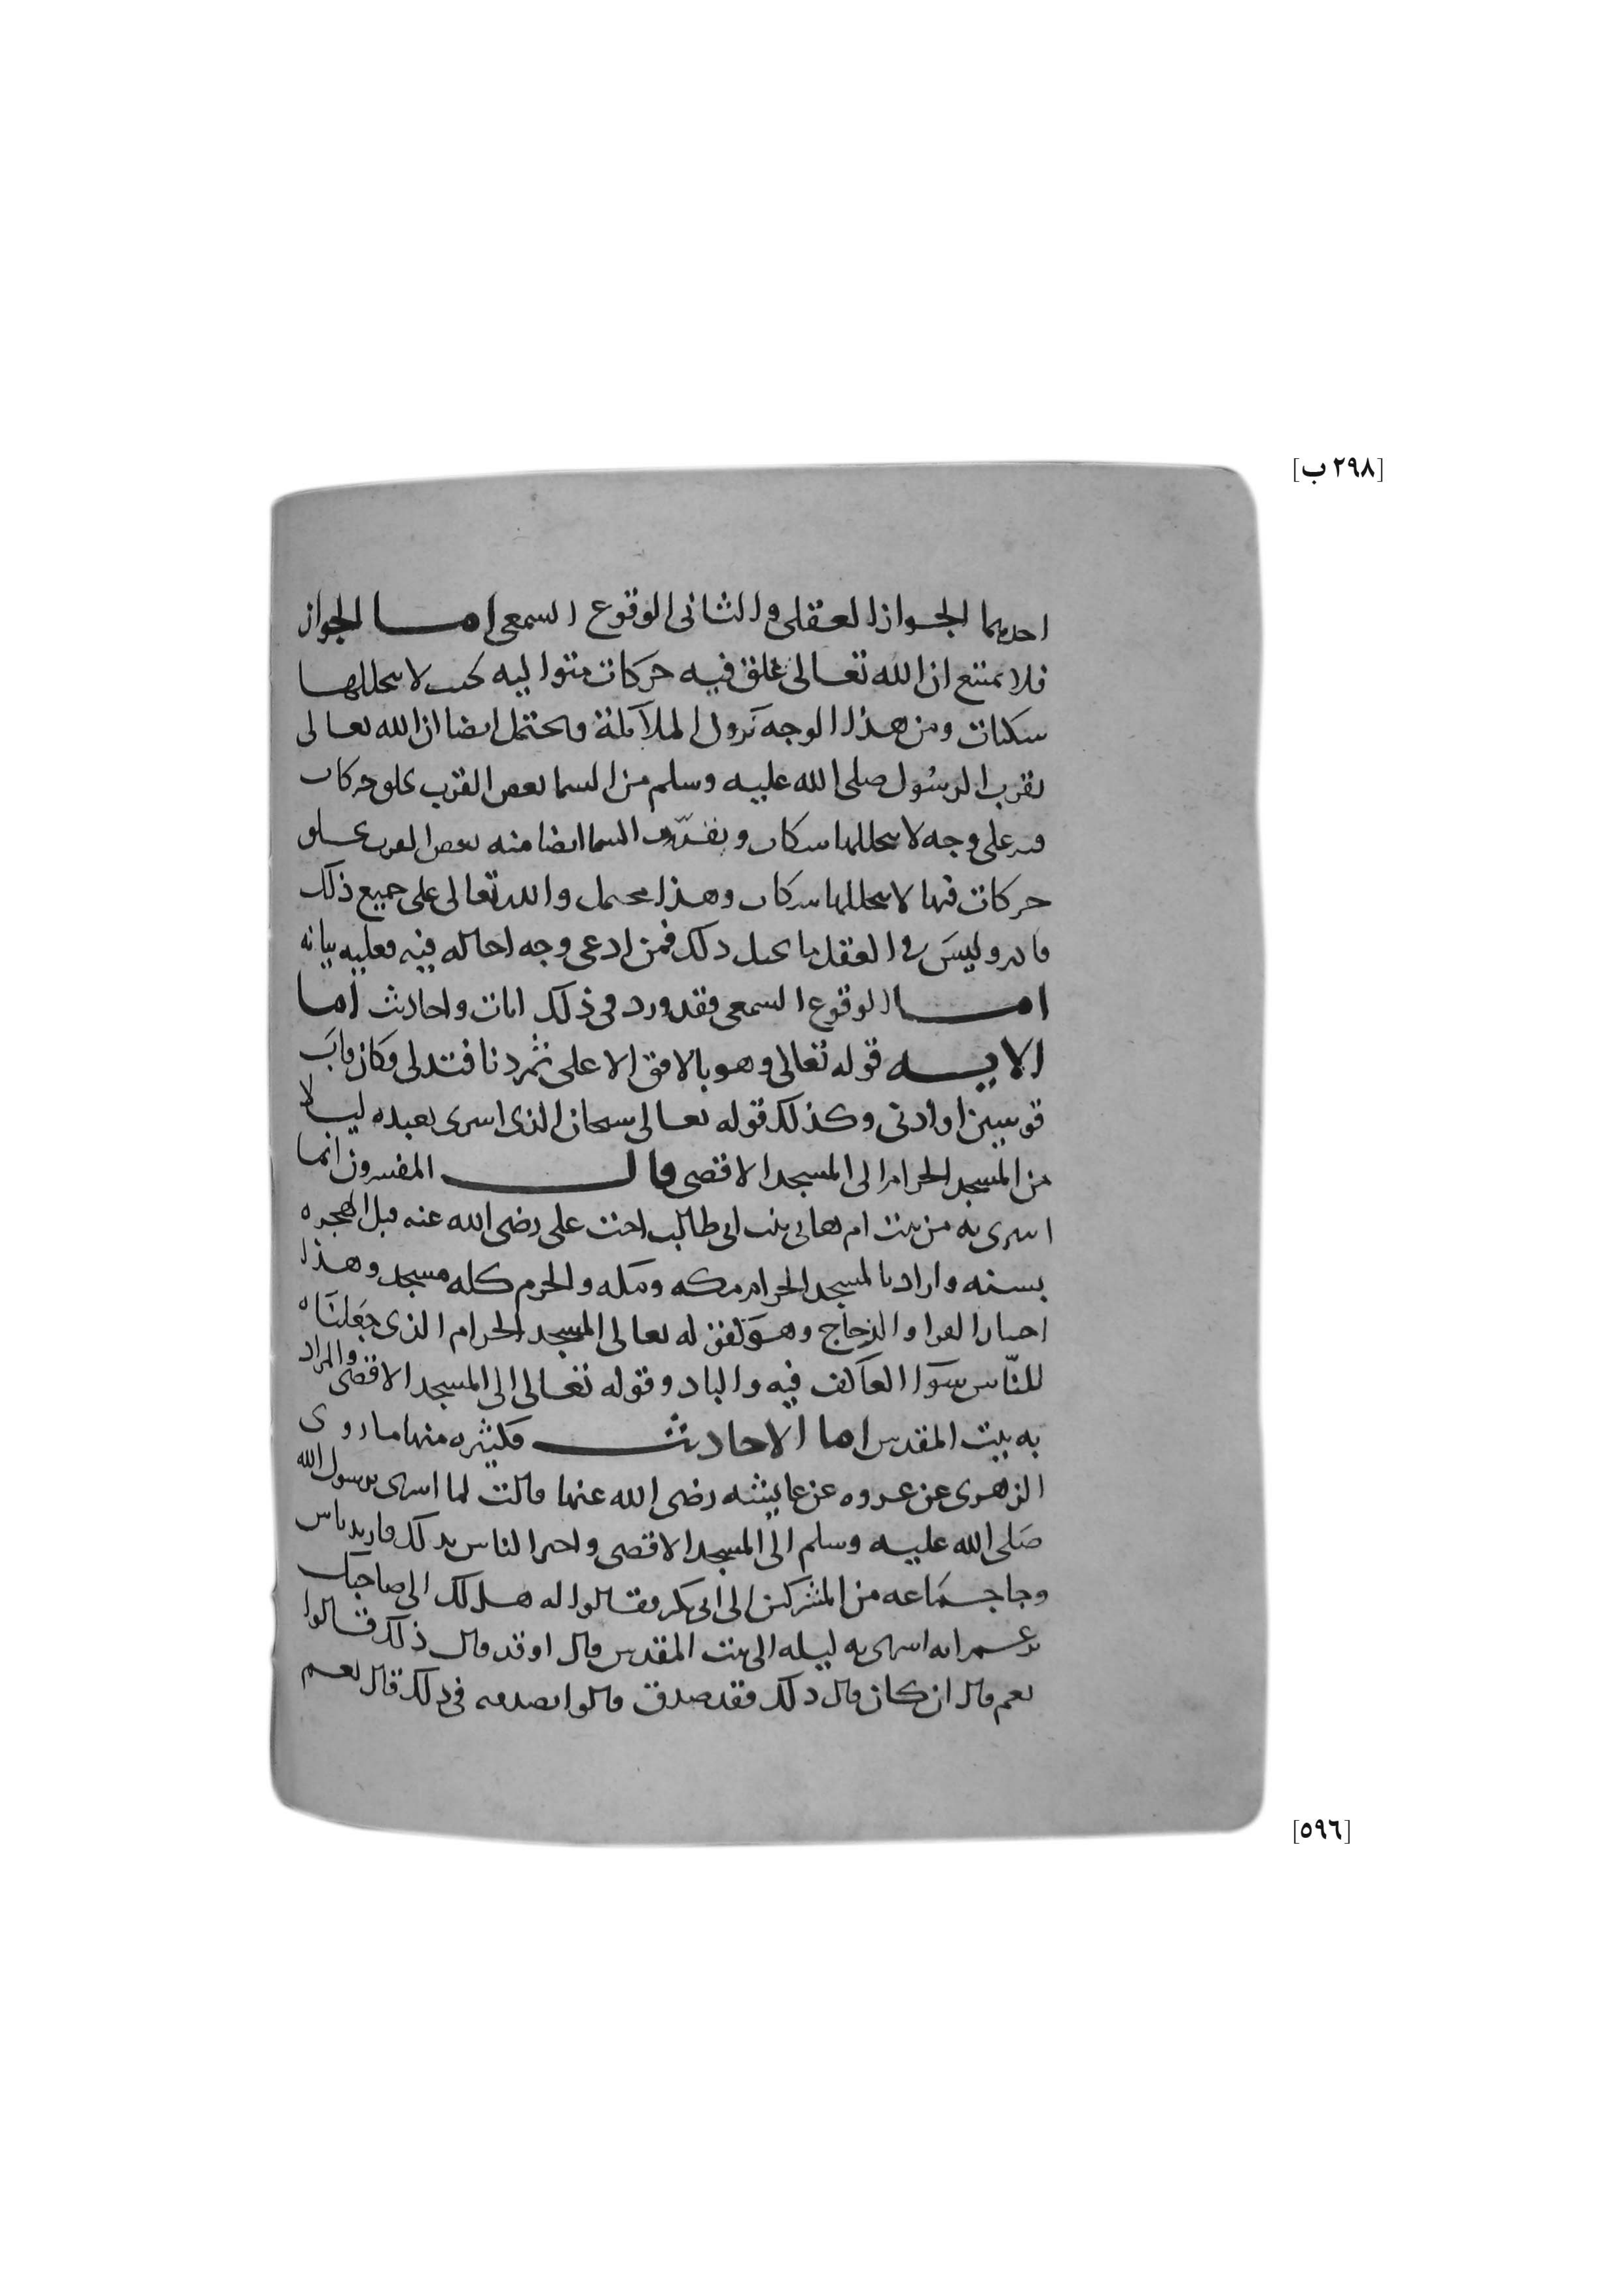 [٢٩٨ ب]
احدهما الجواز العقلى والثانى الوقوع السمعى اما الجواز
فلا يمتنع ان الله تعالى يخلق فيه حركات متواليه بحيث لا يتخللها
سكنات ومن هذا الوجه نزول الملآئكة ويحتمل ايضا ان الله تعالى
يقرب الرسُول صلى الله عليه وسلم من السما بعض القرب بخلق حركات
فيه على وجه لا يتخللها سكنات ويقرّب السما ايضا منه بعض القرب بخلق
حركات فيها لا يتخللها سكنات وهذا محتمل والله تعالى على جميع ذلك
قادر وليسَ فى العقل ما يحيل ذلك فمن ادعى وجه احاله فيه فعليه بيانه
اما الوقوع السمعى فقد ورد فى ذلك ايات واحاديث اما
الايه قوله تعالى وهو بالافق الاعلى ثم دنا فتدلى وكان قابَ
قوسين او ادنى وكذلك قوله تعالى سبحان الذى اسرى بعبده ليلا
من المسجد الحرام الى المسجد الاقصى قال المفسرون انما
اسرى به من بيت ام هانى بنت ابى طالب اخت على رضى الله عنه قبل الهجره
بسنه واراد بالمسجد الحرام مكه ومكه والحرم كله مسجد وهذا
اختيار الفرا والزجاج وهوَ كقوله تعالى المسجد الحرام الذى جَعَلنَاه
للنّاس سَوآ العآكف فيه والباد وقوله تعالى الى المسجد الاقصى والمراد
به بيت المقدس اما الاحاديث فكثيره منها ما روى
الزهرى عن عروه عن عايشه رضى الله عنها قالت لما اسرى برسول الله
صَلى الله عليه وسلم الى المسجد الاقصى واخبر الناس بذلك فارتد ناس
وجا جمَاعه من المشركين الى ابى بكر فقالوا له هل لك الى صاحبك
يزعم انه اسرى به ليله الى بيت المقدس قال اوقد قال ذلك قالوا
نعم قال ان كان قال ذلك فقد صدق قالوا تصدقه فى ذلك قال نعم
[٥٩٦]